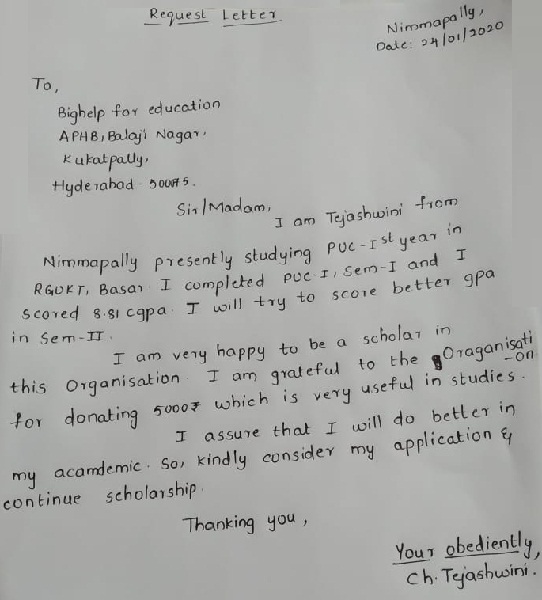 Request Letter.
Nimmapally,
Date: 24/01/2020
To,
Bighelp for education
APHB, Balaji Nagar,
Kukatpally,
Hyderabad
Sir/Madam,
I am Tejashwini from
Nimmapally presently studying PUC-Ist year in
RGUKT, Basar. I completed PUC-I, Sem-I and I
scored 8.81 cgpa. I will try to score better gpa
in Sem-II.
I am very happy to be a scholar in
this Organisation. I am grateful to the Oraganisati
-on
for donating 5000₹ which is very useful in studies.
I assure that I will do better in
my acamdemic. So, kindly consider my application &
continue scholarship.
Thanking you,
Your obediently,
Ch. Tejashwini.